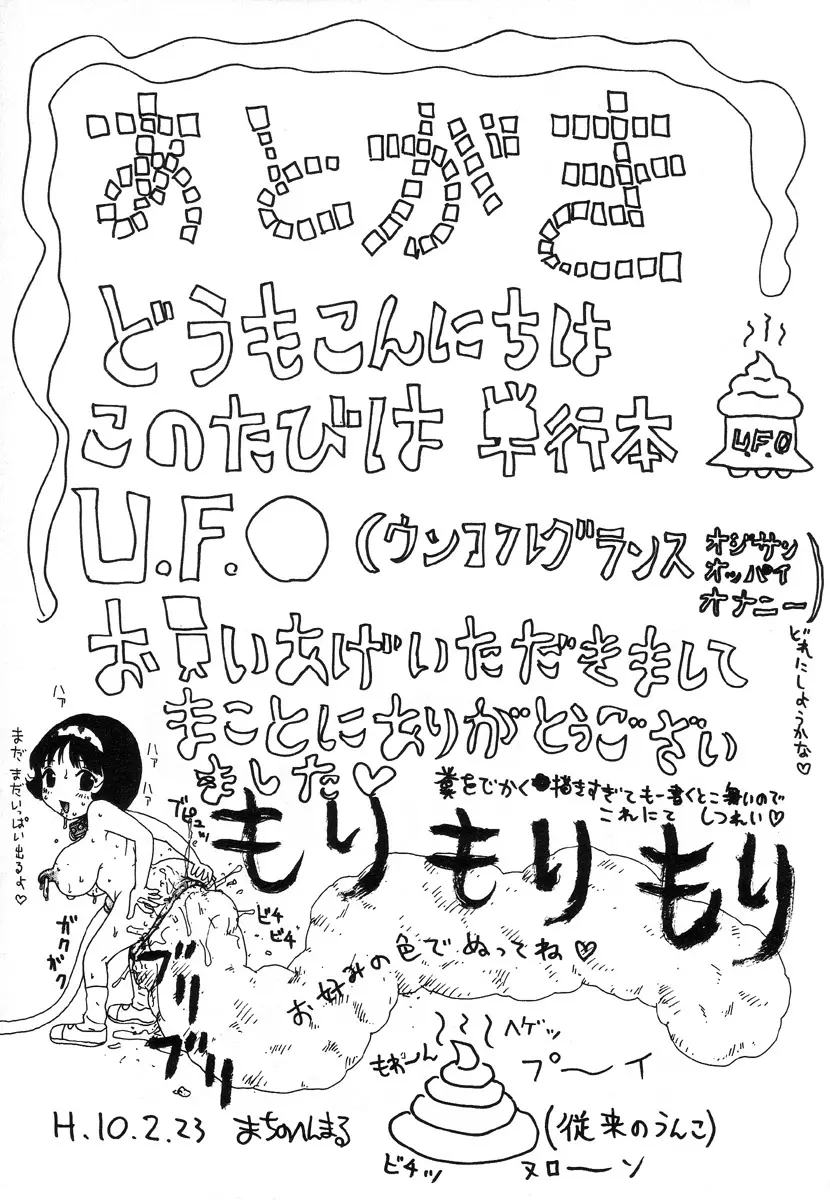 あとがき
どうもこんにちは
このたびは 単行本
U.F.O
U.F.O (ウンコフルグランス オジサン オッパイ オナニー)
どれにしようかな♡
お買いあげいただきまして
まことにありがとうござい
ました♡
糞をでかく描きすぎてもー書くとこ無いので
これにて しつれい♡
ハァ
ハァ
ハァ
まだまだいっぱい出るよ♡
ブピュッ
もりもりもり
ビチ
ビチ
ガクガク
ブリブリ
お好みの色でぬってね♡
ヘゲッ
もわーん
プ〜イ
(従来のうんこ)
ビチッ
ヌロ〜ン
H.10.2.23